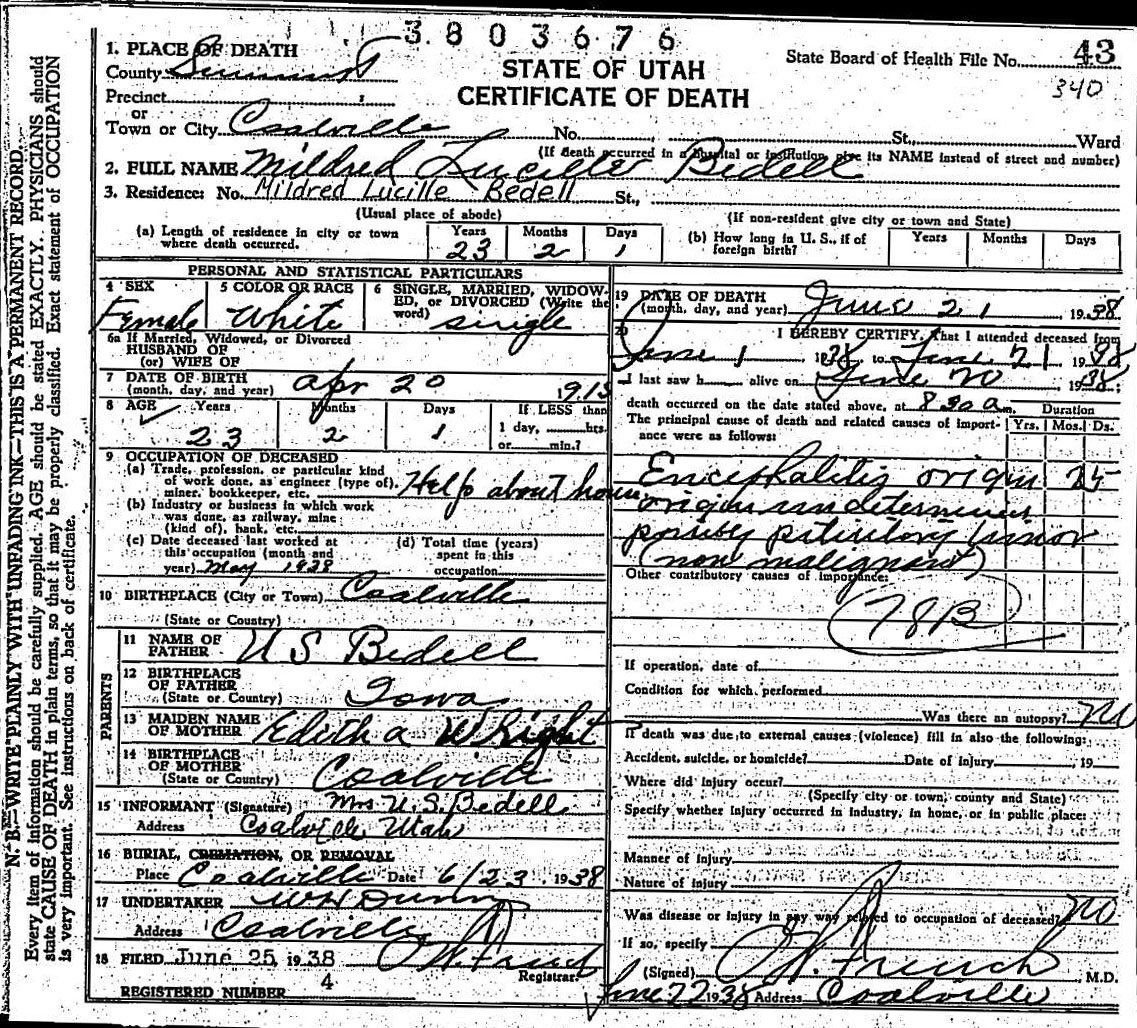 3803676
1. PLACE OF DEATH
County Summit
STATE OF UTAH
State Board of Health File No. 43
340
Precinct
CERTIFICATE OF DEATH
or
Town or City Coalville No. St., Ward
(If death occurred in a hospital or institution, give its NAME instead of street and number)
2. FULL NAME Mildred Lucille Bedell
3. Residence: No. Mildred Lucille Bedell St.,
(Usual place of abode) (If non-resident give city or town and State)
(a) Length of residence in city or town where death occurred. Years 23 Months 2 Days 1
(b) How long in U. S., if of foreign birth? Years Months Days
PERSONAL AND STATISTICAL PARTICULARS
4 SEX Female
5 COLOR OR RACE White
6 SINGLE, MARRIED, WIDOWED, or DIVORCED (Write the word) single
6a If Married, Widowed, or Divorced
HUSBAND OF
(or) WIFE OF
7 DATE OF BIRTH
(month, day, and year) Apr 20 1915
8 AGE Years 23 Months 2 Days 1 If LESS than 1 day, hrs. or min.?
9 OCCUPATION OF DECEASED
(a) Trade, profession, or particular kind of work done, as engineer (type of), miner, bookkeeper, etc. Help about house
(b) Industry or business in which work was done, as railway, mine (kind of), bank, etc.
(c) Date deceased last worked at this occupation (month and year) May 1938
(d) Total time (years) spent in this occupation
10 BIRTHPLACE (City or Town) Coalville
(State or Country)
PARENTS
11 NAME OF FATHER U S Bedell
12 BIRTHPLACE OF FATHER
(State or Country) Iowa
13 MAIDEN NAME OF MOTHER Edith a Wright
14 BIRTHPLACE OF MOTHER
(State or Country) Coalville
15 INFORMANT (Signature) Mrs U.S. Bedell
Address Coalville Utah
16 BURIAL, CREMATION, OR REMOVAL
Place Coalville Date 6/23 1938
17 UNDERTAKER WH Dunn
Address Coalville
18 FILED June 25, 1938 Registrar.
REGISTERED NUMBER 4
19 DATE OF DEATH
(month, day, and year) June 21, 1938
20 I HEREBY CERTIFY, that I attended deceased from
June 1 1938 to June 21 1938
I last saw h alive on June 20 1938
death occurred on the date stated above, at 8 30 a m. Duration
The principal cause of death and related causes of importance were as follows: Yrs. Mos. Ds.
Encephalitis origin
origin undetermined
possibly pituitary tumor
(non malignant)
Other contributory causes of importance:
78B
If operation, date of
Condition for which performed
Was there an autopsy? no
If death was due to external causes (violence) fill in also the following:
Accident, suicide, or homicide? Date of injury , 19
Where did injury occur?
(Specify city or town, county and State)
Specify whether injury occurred in industry, in home, or in public place:
Manner of injury
Nature of injury
Was disease or injury in any way related to occupation of deceased? no
If so, specify
(Signed) French M.D.
June 22 1938 Address Coalville
N. B.—WRITE PLAINLY WITH UNFADING INK—THIS IS A PERMANENT RECORD.
Every item of information should be carefully supplied. AGE should be stated EXACTLY. PHYSICIANS should
state CAUSE OF DEATH in plain terms, so that it may be properly classified. Exact statement of OCCUPATION
is very important. See instructions on back of certificate.